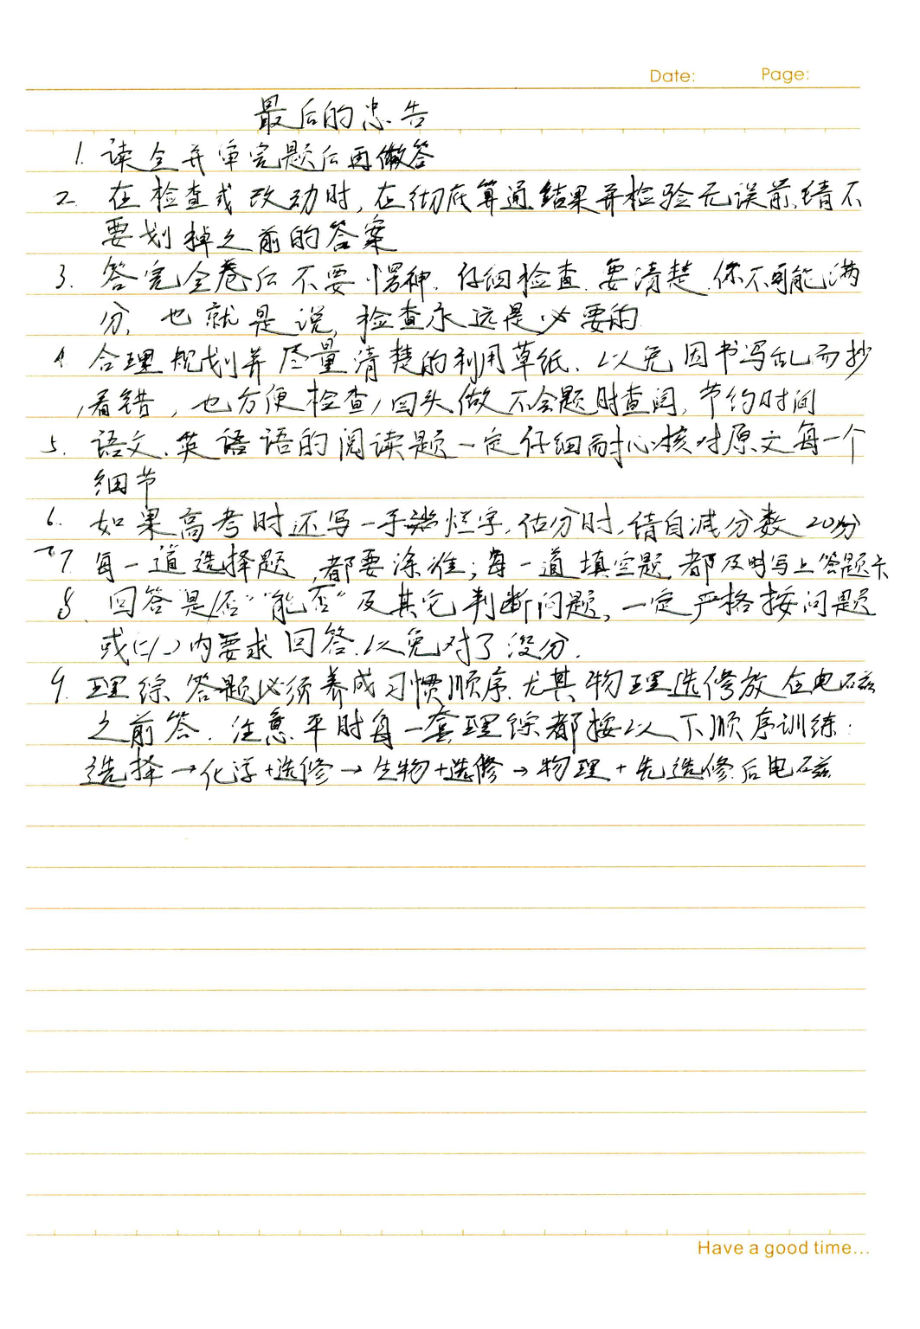 Date: Page:
最后的忠告
1. 读全并审完题后再做答
2. 在检查或改动时,在彻底算通结果并检验无误前,请不
要划掉之前的答案
3. 答完全卷后不要愣神.仔细检查.要清楚.你不可能满
分,也就是说,检查永远是必要的
4 合理规划并尽量清楚的利用草纸.以免因书写乱而抄
,看错,也方便检查,回头做不会题时查阅,节约时间
5. 语文、英语语的阅读题一定仔细耐心核对原文每一个
细节
6. 如果高考时还写一手烂字,估分时,请自减分数20分
7. 每一道选择题,都要涂准;每一道填空题,都及时写上答题卡
8. 回答"是否""能否"及其它判断问题,一定严格按问题
或( )内要求回答.以免对了没分.
9. 理综答题必须养成习惯顺序.尤其物理选修放在电磁
之前答.注意平时每一套理综都按以下顺序训练:
选择→化学+选修→生物+选修→物理+先选修后电磁
Have a good time...